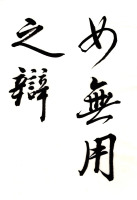 如無用
之辯